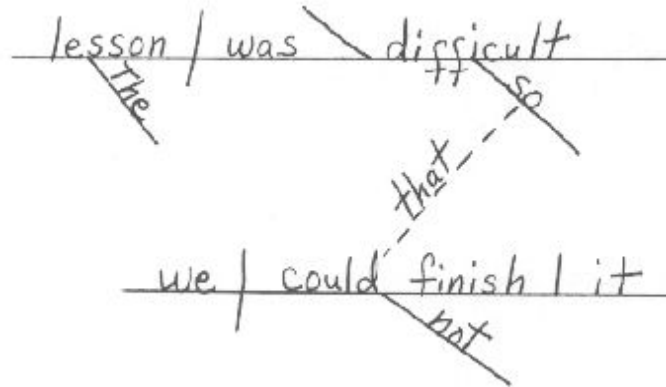 lesson | was \ difficult
The
so
that
we | could finish | it
not